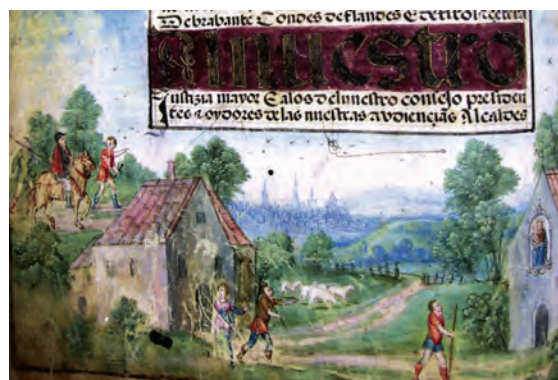 De brabante Condes de flandes E de tirol etcetera
Al nuestro
Justizia mayor E a los del nuestro consejo presiden
tes & oydores de las nuestras avdiençias Alcaldes